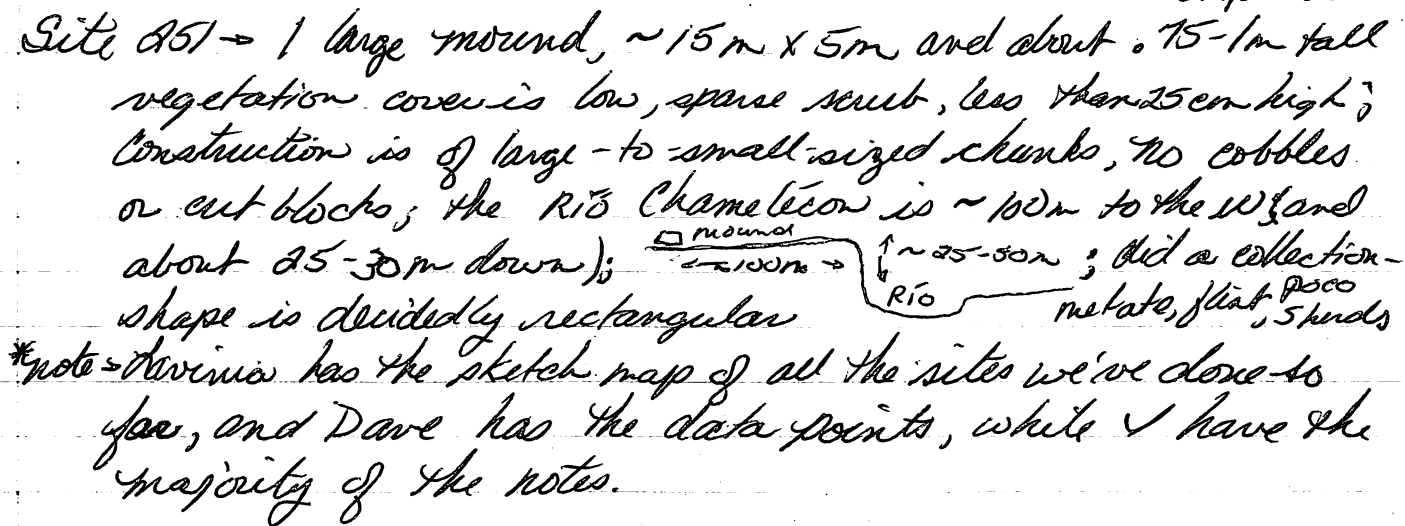 Site 251 → 1 large mound, ~15m x 5m and about .75-1m tall
vegetation cover is low, sparse scrub, less than 25cm high;
Construction is of large-to-small-sized chunks, no cobbles
or cut blocks; the Río Chamelecón is ~100m to the W (and
about 25-30m down);
mound
~100m
~25-30m
Río
; did a collection-
metate, flint, poco sherds
shape is decidedly rectangular
*note → Lavinia has the sketch map of all the sites we've done so
far, and Dave has the data points, while I have the
majority of the notes.